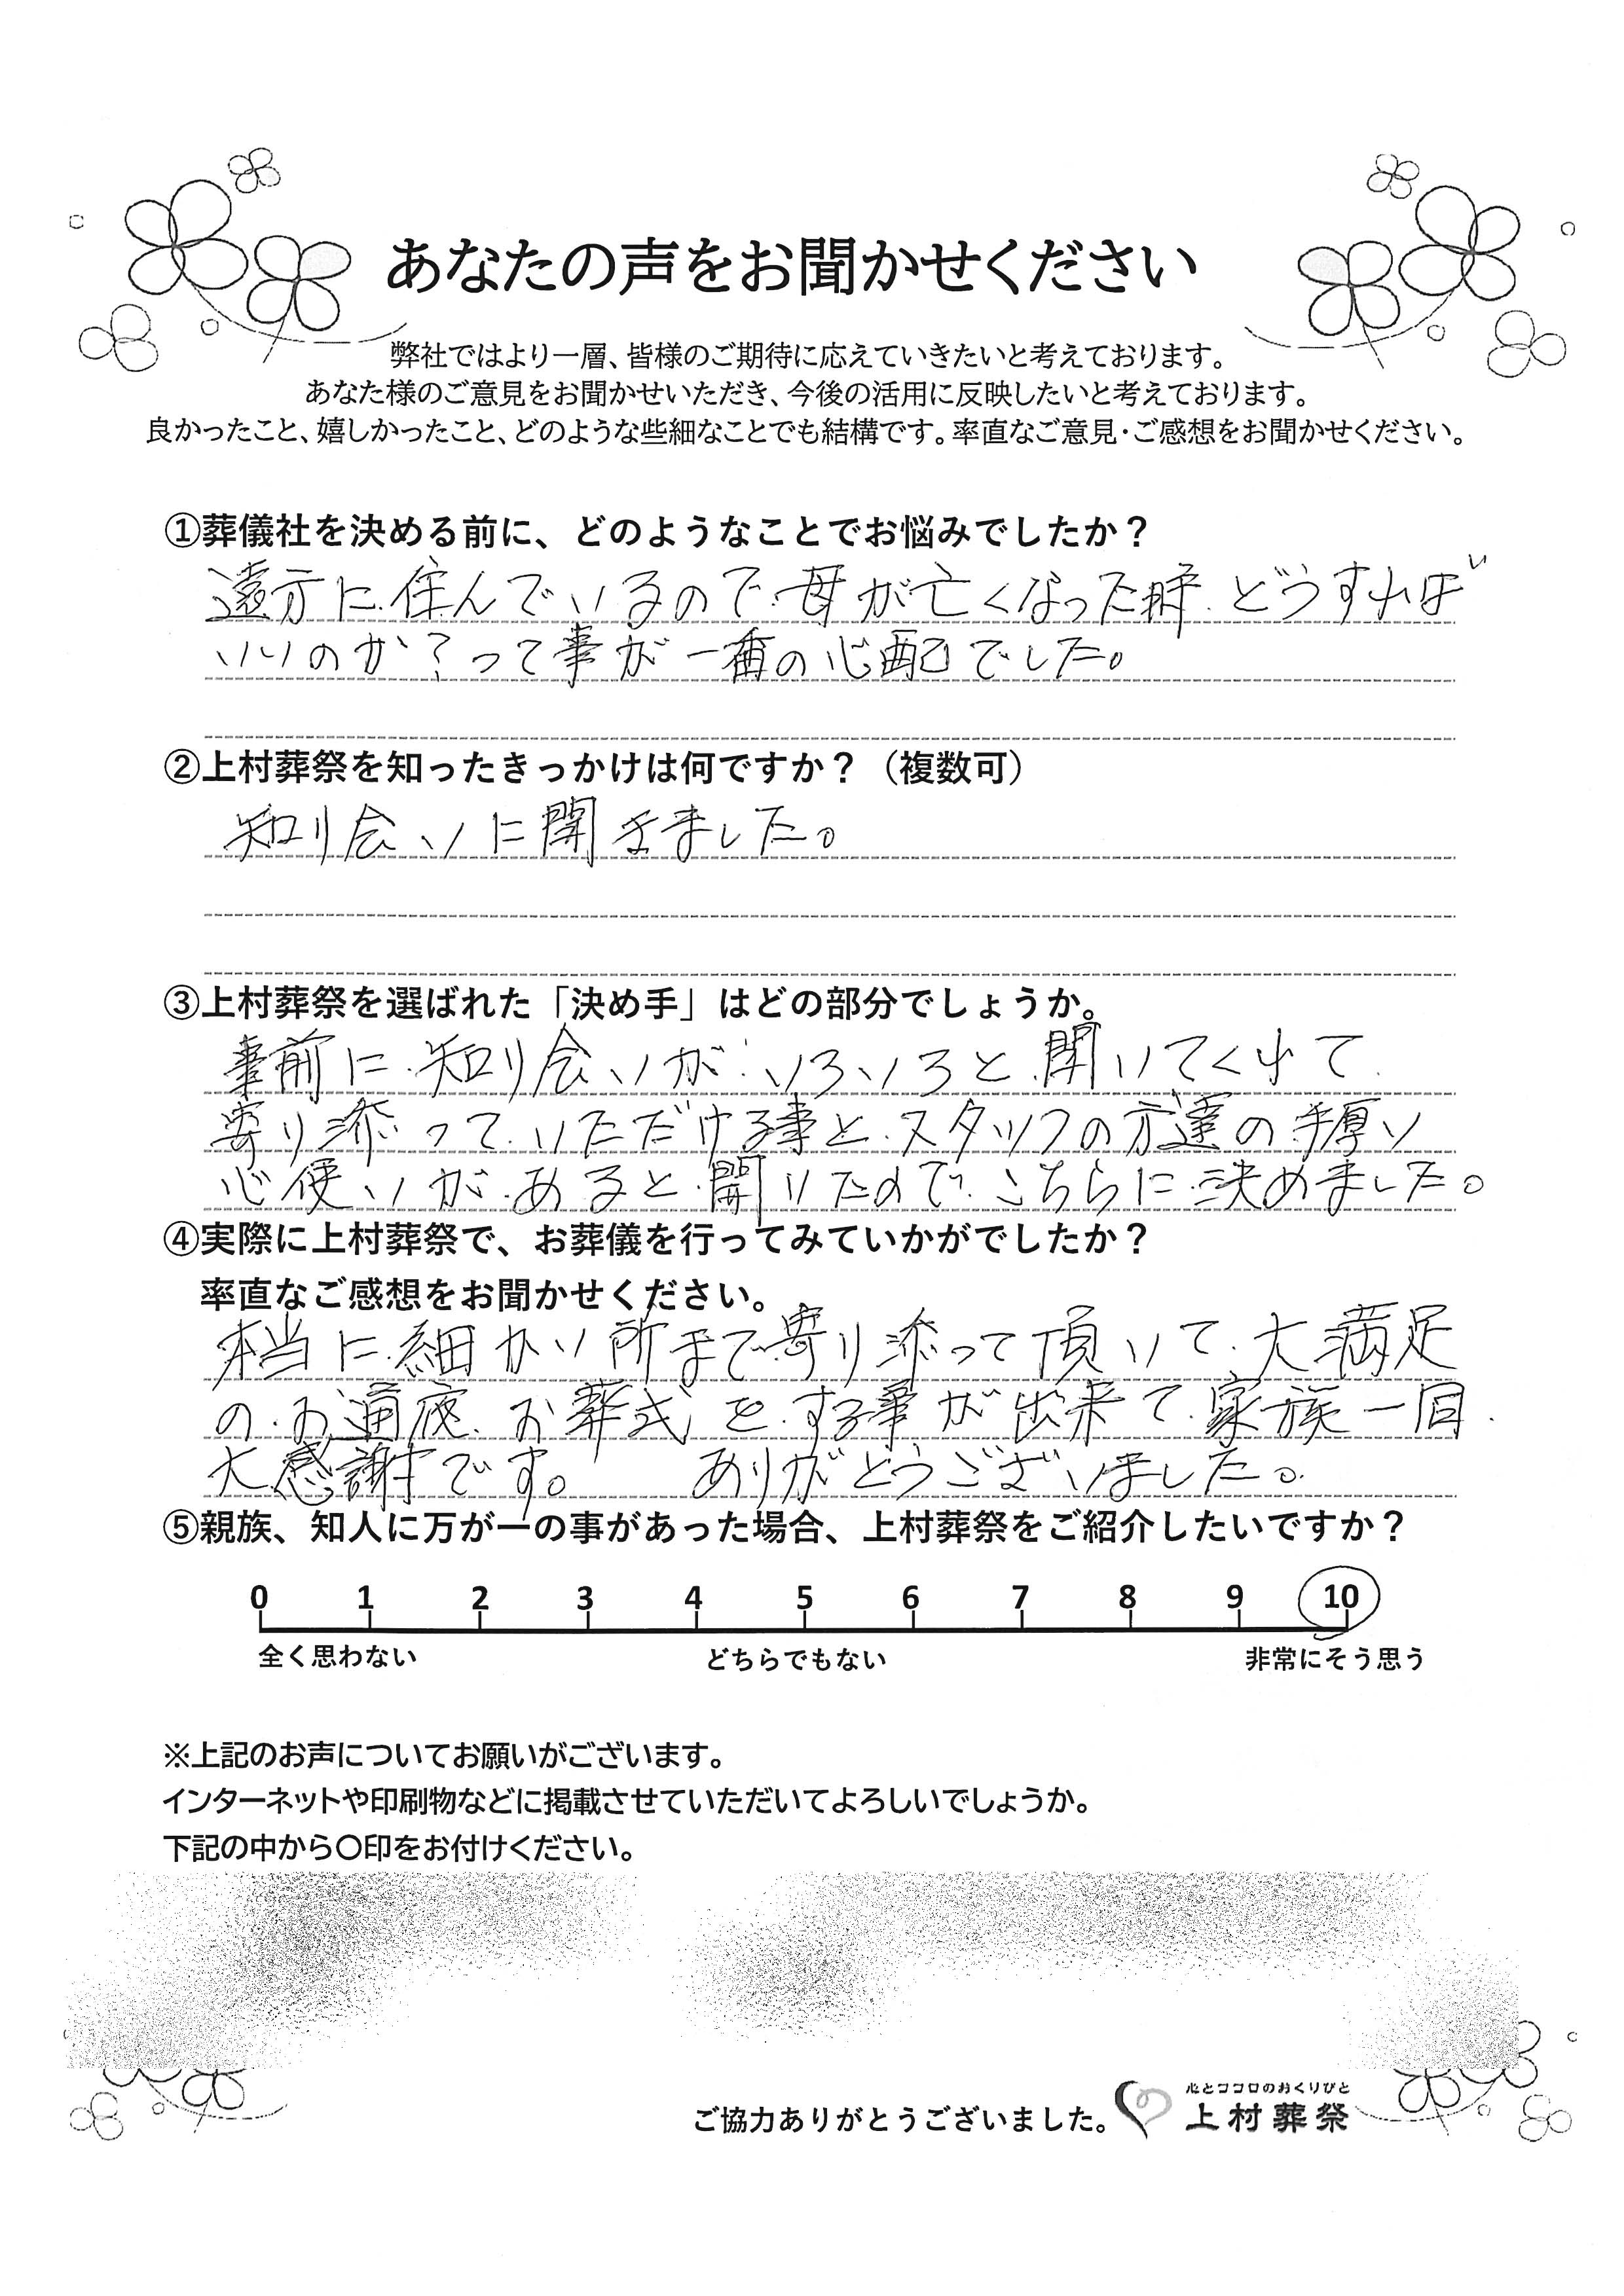 あなたの声をお聞かせください
弊社ではより一層、皆様のご期待に応えていきたいと考えております。
あなた様のご意見をお聞かせいただき、今後の活用に反映したいと考えております。
良かったこと、嬉しかったこと、どのような些細なことでも結構です。率直なご意見・ご感想をお聞かせください。
①葬儀社を決める前に、どのようなことでお悩みでしたか？
遠方に住んでいるので母が亡くなった時どうすれば
いいのか？って事が一番の心配でした。
②上村葬祭を知ったきっかけは何ですか？（複数可）
知り会いに聞きました。
③上村葬祭を選ばれた「決め手」はどの部分でしょうか。
事前に知り会いがいろいろと聞いてくれて
寄り添っていただける事とスタッフの方達の手厚い
心使いがあると聞いたので、こちらに決めました。
④実際に上村葬祭で、お葬儀を行ってみていかがでしたか？
率直なご感想をお聞かせください。
本当に細かい所まで寄り添って頂いて大満足
のお通夜、お葬式をする事が出来て家族一同
大感謝です。 ありがとうございました。
⑤親族、知人に万が一の事があった場合、上村葬祭をご紹介したいですか？
0 1 2 3 4 5 6 7 8 9 10
全く思わない どちらでもない 非常にそう思う
※上記のお声についてお願いがございます。
インターネットや印刷物などに掲載させていただいてよろしいでしょうか。
下記の中から〇印をお付けください。
心とココロのおくりびと
ご協力ありがとうございました。 上村葬祭